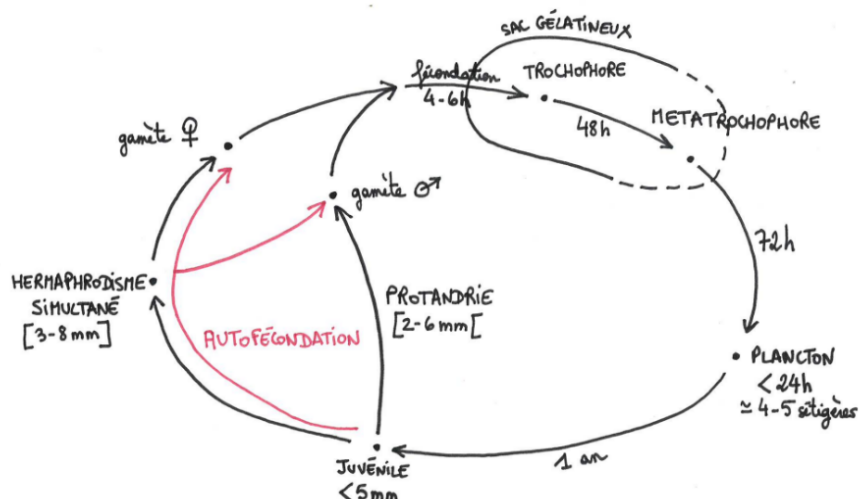 SAC GÉLATINEUX
fécondation
4-6h
TROCHOPHORE
48h
METATROCHOPHORE
gamète ♀
gamète ♂
72h
HERMAPHRODISME
SIMULTANÉ
[3-8mm]
AUTOFÉCONDATION
PROTANDRIE
[2-6mm[
PLANCTON
<24h
≃4-5 sétigères
1 an
JUVÉNILE
<5mm